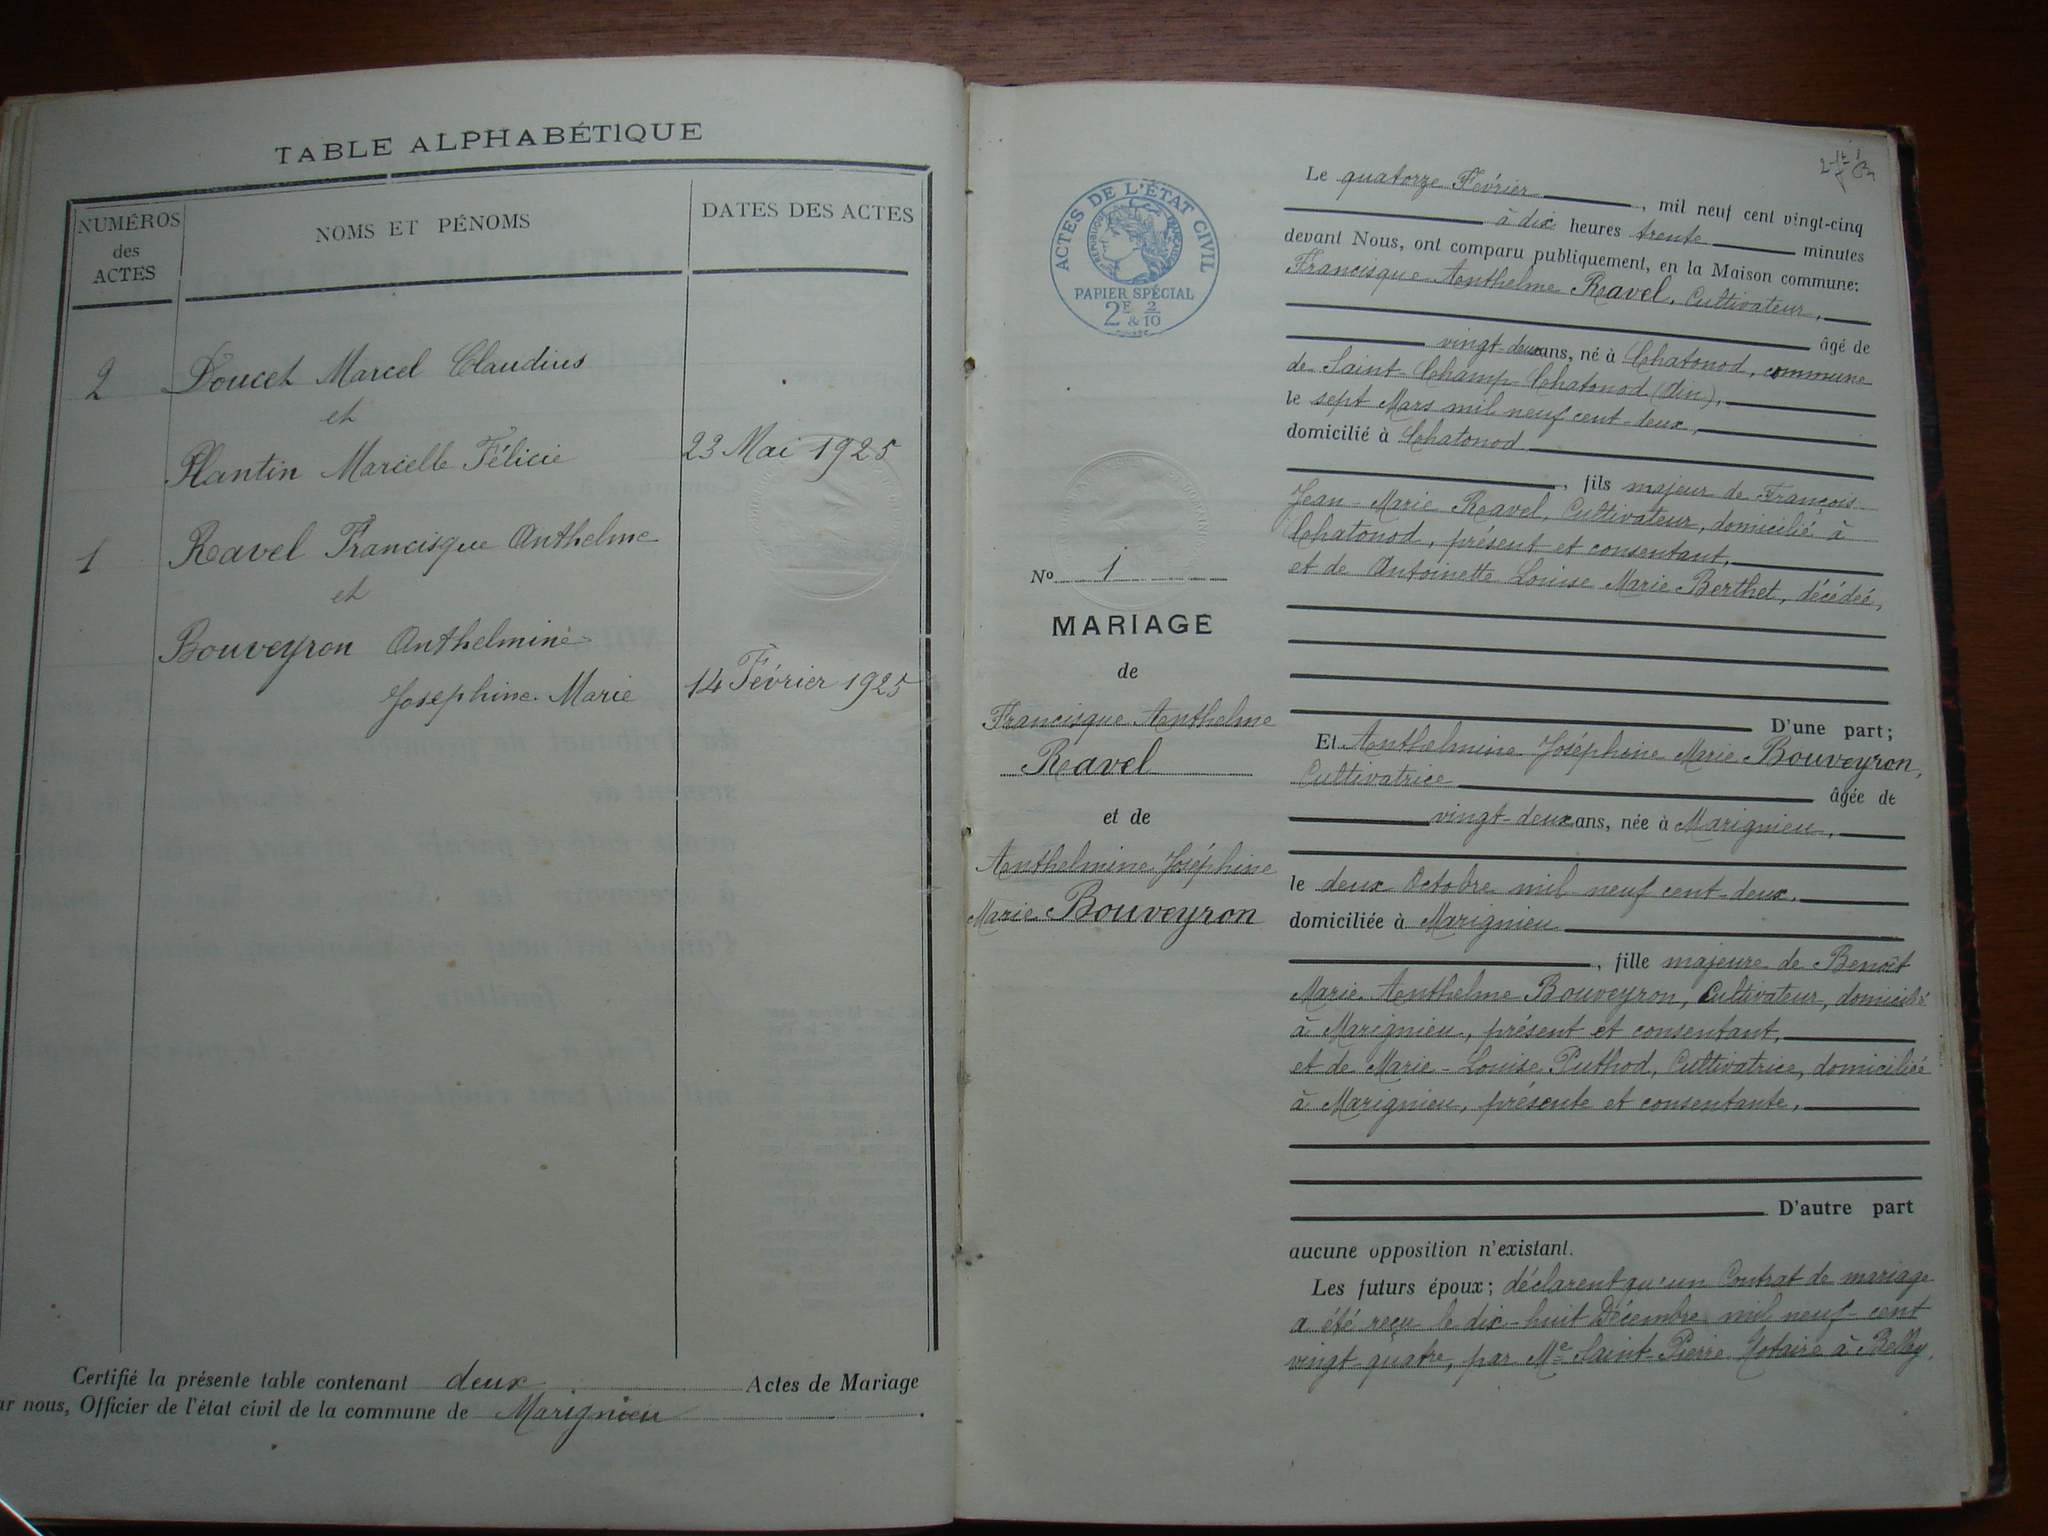 TABLE ALPHABÉTIQUE
NUMÉROS
des
ACTES
NOMS ET PÉNOMS
DATES DES ACTES
2 Doucet Marcel Claudius
et
Plantin Marcelle Félicie 23 Mai 1925
1 Ravel Francisque Anthelme
et
Bouveyron Anthelmine
Joséphine Marie 14 Février 1925
Certifié la présente table contenant deux Actes de Mariage
ur nous, Officier de l'état civil de la commune de Marignieu.
ACTES DE L'ÉTAT CIVIL
RÉPUBLIQUE FRANÇAISE
PAPIER SPÉCIAL
2F & 2/10
No 1
MARIAGE
de
Francisque Anthelme
Ravel
et de
Anthelmine Joséphine
Marie Bouveyron
Le quatorze Février, mil neuf cent vingt-cinq
à dix heures trente minutes
devant Nous, ont comparu publiquement, en la Maison commune:
Francisque Anthelme Ravel, Cultivateur,
âgé de
vingt-deux ans, né à Chatonod, commune
de Saint-Champ-Chatonod (Ain),
le sept Mars mil neuf cent-deux,
domicilié à Chatonod
, fils majeur de François-
Jean-Marie Ravel, Cultivateur, domicilié à
Chatonod, présent et consentant,
et de Antoinette Louise Marie Berthet, décédée,
D'une part;
Et Anthelmine Joséphine Marie Bouveyron,
Cultivatrice âgée de
vingt-deux ans, née à Marignieu,
le deux Octobre mil neuf cent-deux,
domiciliée à Marignieu
, fille majeure de Benoît
Marie Anthelme Bouveyron, Cultivateur, domicilié
à Marignieu, présent et consentant,
et de Marie-Louise Puthod, Cultivatrice, domiciliée
à Marignieu, présente et consentante,
D'autre part
aucune opposition n'existant.
Les futurs époux; déclarent qu'un Contrat de mariage
a été reçu le dix-huit Décembre mil neuf-cent
vingt-quatre, par Me Saint-Pierre Notaire à Belley,